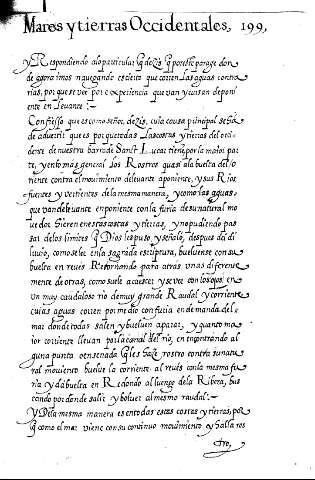 Mares y tierras Occidentales, 199,
y Respondiendo alo particular q̃ dezis q̃ por este parage don
de agora imos nauegando es cierto que corren las aguas contra
rias, porque se vee por experiencia que van y uisan de poni
ente en Leuante :-
Confiesso que es como señor, dezis, cuia causa principal se ha
de aduertir que es porque todas Las costas y tierras del occi
dente de nuestra barra de Sanct Lucar tienen por la maior par
te, y en lo mas general Los Rostros quasi ala buelta del o
riente contra el mouimiento de leuante a poniente, y sus Rios
fuentes y vertientes dela mesma manera, y como las aguas
que van de leuante en poniente con la furia de su natural mo
ue dor hieren en estas costas y tierras, y no pudiendo pas
sar de los limites q̃ Dios les puso, y señalo, despues del di
luuio, como se lee en la sagrada escriptura, bueluense con su
buelta en reues Retornando para atras unas diferente
mente de otras, como suele acaescer y se vee con los ojos en
un muy caudaloso rio de muy grande Raudal y corriente
cuias aguas corren por medio con furia en demanda del
mar donde todas salen y bueluen a parar, y quanto ma
ior corriente lleuan por la canal del rio, en encontrando al
guna punta o ensenada q̃ les haze rostro contra su natu
ral mouiento buelue la corriente al reues con la mesma fu
ria y da buelta en Redondo al luengo dela Ribera, bus
cando por donde salir y boluer al mesmo raudal :-
Y Dela mesma manera es en todas estas costas y tierras, por
q̃ como el mar viene con su continuo mouimiento y halla ros
tro,